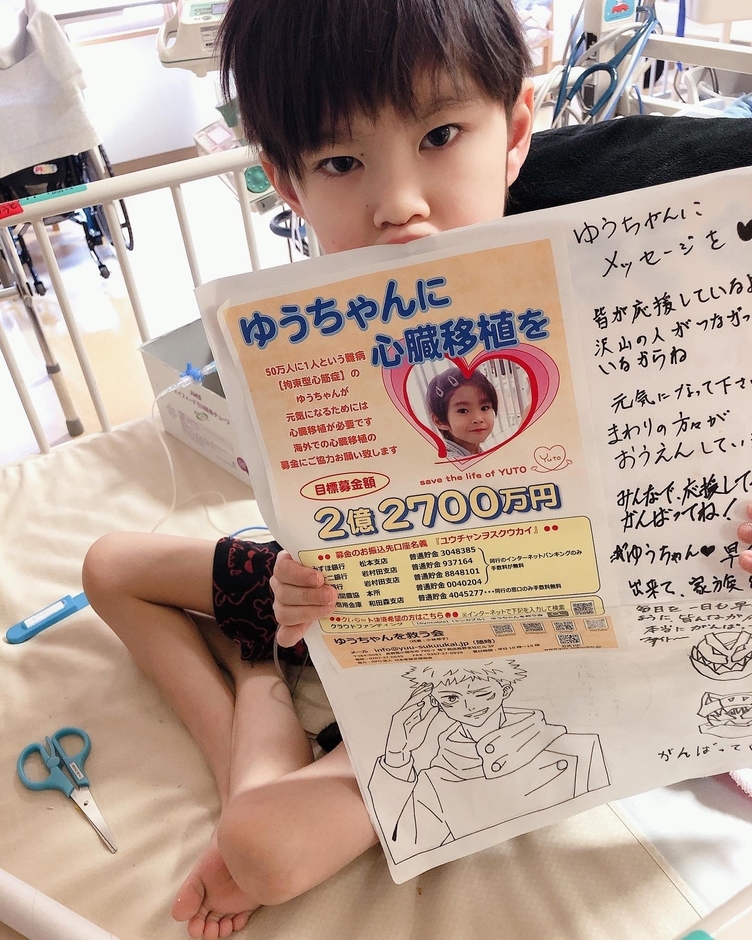 ゆうちゃんに
心臓移植を
50万人に1人という難病
【拘束型心筋症】の
ゆうちゃんが
元気になるためには
心臓移植が必要です
海外での心臓移植の
募金にご協力お願い致します
目標募金額
2億2700万円
save the life of YUTO
Yuto
●● 募金のお振込先口座名義 『ユウチャンヲスクウカイ』 ●●
みずほ銀行 松本支店 普通貯金 3048385
岩村田支店 普通貯金 937164
岩村田支店 普通貯金 8848101
本所 普通貯金 0040204
用金庫 和田森支店 普通貯金 4045277・・・同行の窓口のみ手数料が無料
同行のインターネットバンキングのみ
手数料が無料
●クレジット決済希望の方はこちら●
クラウドファンディング
※インターネットで下記を入力して検索
ゆうちゃんを救う会
メール info@yuu-sukuukai.jp (随時)
ゆうちゃんに
メッセージを
皆が応援しているよ
沢山の人がつながっ
いるからね
元気になって下さ
まわりの方々が
おうえんしてい
みんなで応援して
がんばってね!
ゆうちゃん♥ 早
出来て、家族
毎日を一日も早
がんばって